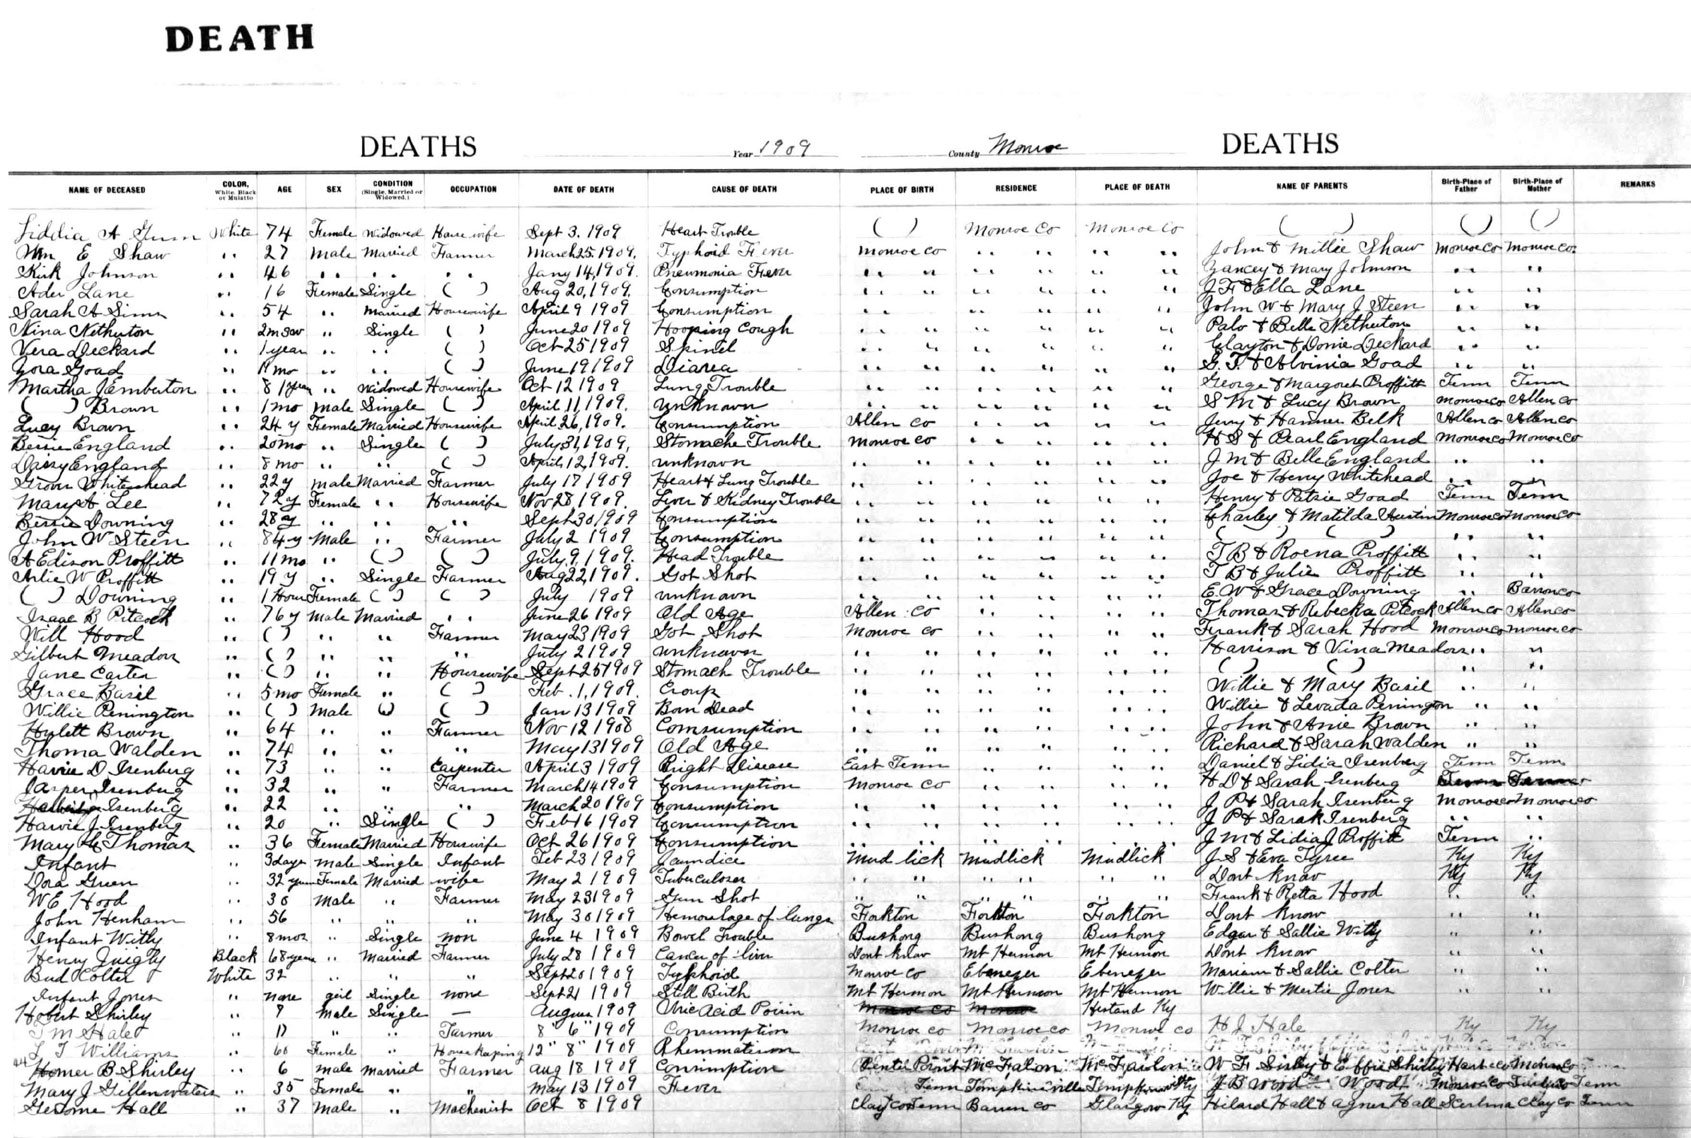 DEATH
DEATHS Year 1909 County Monroe DEATHS
NAME OF DECEASED COLOR, White, Black or Mulatto AGE SEX CONDITION (Single, Married or Widowed.) OCCUPATION DATE OF DEATH CAUSE OF DEATH PLACE OF BIRTH RESIDENCE PLACE OF DEATH NAME OF PARENTS Birth-Place of Father Birth-Place of Mother REMARKS
Liddia A Gunn White 74 Female Widowed House wife Sept 3, 1909 Heart Trouble ( ) Monroe Co Monroe Co ( ) ( ) ( )
Wm E Shaw " 27 Male Married Farmer March 25, 1909. Typhoid Fever Monroe co " " " " John & Millie Shaw Monroe Co Monroe Co.
Kirk Johnson " 46 " " " Jany 14, 1909. Pneumonia Fever " " " " " " Yancey & Mary Johnson " "
Ader Lane " 16 Female Single ( ) Aug 20, 1909. Consumption " " " " " " J F & Ella Lane " "
Sarah A Sims " 54 " Married Housewife April 9 1909 Consumption " " " " " " John W & Mary J Steen " "
Nina Netherton " " Single ( ) June 20 1909 Hooping Cough " " " " " " Palo & Belle Netherton " "
Vera Deckard " 1 year " " ( ) Oct 25 1909 Spinel " " " " " " Clayton & Donie Deckard " "
Goad " mo " " ( ) June 19 1909 Diarea " " " " " " G. T. & Alvinia Goad " "
Martha Pemberton " 81 " Widowed Housewife Oct 12 1909 Lung Trouble " " " " " " George & Margaret Proffitt Tenn Tenn
( ) Brown " 1 mo male Single ( ) April 11, 1909. unknown " " " " " " S M & Lucy Brown Monroe co Allen co
Lucy Brown " 24 y Female Married Housewife April 26, 1909. Consumption Allen Co " " " " Jerry & Hanner Belk Allen co Allen co
Bessie England " 20 mo " Single ( ) July 31, 1909, Stomache Trouble Monroe co " " " " H S & Pearl England Monroe co Monroe co
England " 8 mo " " ( ) April 12, 1909. unknown " " " " " " J M & Belle England " "
Whitehead " 22 y male Married Farmer July 17 1909 Heart & Lung Trouble " " " " " " Joe & Henry Whitehead " "
Mary A Lee " 72 y Female " Housewife Nov 28, 1909. Liver & Kidney Trouble " " " " " " Henry & Goad Tenn Tenn
Bessie Downing " 28 y " " " Sept 30, 1909 Consumption " " " " " " Charley & Matilda Austin Monroe co Monroe co
John W Steen " 84 y Male " Farmer July 2 1909 Consumption " " " " " " ( ) ( ) " "
A Edison Proffitt " 11 mo " ( ) ( ) July 9, 1909. Head Trouble " " " " " " T B & Roena Proffitt " "
Arlie W Proffitt " 19 y " Single Farmer Aug 22, 1909. Got Shot " " " " " " T B & Julie Proffitt " "
( ) Downing " 1 Hour Female ( ) ( ) July 1909 unknown " " " " " " E. W & Grace Downing " Barren co
Isaac B Pitcock " 76 y Male Married " June 26 1909 Old Age Allen Co " " " " Thomas & Rebecka Pitcock Allen co Allen co
Will Hood " ( ) " " Farmer May 23 1909 Got Shot Monroe co " " " " Frank & Sarah Hood Monroe co Monroe co
Gilbert Meador " ( ) " " " July 2 1909 unknown " " " " " " Harrison & Vina Meadors " "
Jane Carter " ( ) " " Housewife Sept 25 1909 Stomach Trouble " " " " " " ( ) ( ) " "
Grace Basil " 5 mo Female " ( ) Feb. 1, 1909. Croup " " " " " " Willie & Mary Basil " "
Willie Penington " ( ) Male ( ) ( ) Jan 13 1909 Born Dead " " " " " " Willie & Levada Penington " "
Hylett Brown " 64 " " Farmer Nov 12 1908 Comsumption " " " " " " John & Anie Brown " "
Thoma Walden " 74 " " " May 13 1909 Old Age " " " " " " Richard & Sarah Walden " "
Harvie D Isenberg " 73 " " Carpenter April 3 1909 Bright Disease East Tenn " " " " Daniel & Lidia Isenberg Tenn Tenn
Casper Isenberg " 32 " " Farmer March 14 1909 Consumption Monroe Co " " " " H D & Sarah Isenberg
Isenberg " 22 " " " March 20 1909 Consumption " " " " " " J P & Sarah Isenberg Monroe co Monroe co
Harvie J. Isenberg " 20 " Single ( ) Feb 16 1909 Consumption " " " " " " J P & Sarah Isenberg " "
Mary Thomas " 36 Female Married Housewife Oct 26 1909 Consumption " " " " " " J M & Lidia J Proffitt Tenn "
Infant " 3 days Male Single Infant Feb 23 1909 Jaundice Mud lick Mudlick Mudlick J. S & Eva Tyree Ky Ky
Dora Green " 32 Female Married wife May 2 1909 Tuberculoses " " " " " " Dont Know Ky Ky
W E Hood " 30 Male " Farmer May 23 1909 Gun Shot " " " " " " Frank & Retta Hood
John Henham " 56 " " " May 30 1909 Hemorrhage of lungs Forkton Forkton Forkton Dont Know " "
Infant Witty " 8 mos " Single non June 4 1909 Bowel Trouble Bushong Bushong Bushong Edgar & Sallie Witty " "
Henry Black 68 years " Married Farmer July 28 1909 Cancer of liver Dont Know Mt Hermon Mt Hermon Dont Know " "
Bud Colter White 32 " " " Sept 20 1909 Typhoid Monroe co Ebenezer Ebenezer Mariam & Sallie Colter " "
Infant Jones " none girl Single none Sept 21 1909 Still Birth Mt Hermon Mt Hermon Mt Hermon Willie & Mertie Jones " "
Hobert Shirley " 9 Male Single — August 1909 Uric Acid Poisin Ky
T M Hale " " " Farmer 8 " 6 " 1909 Consumption Monroe co Monroe co Monroe co H J Hale Ky Ky
J T Williams " 60 Female " Housekeeping 12 " 8 " 1909 Rhemmatism
Homer B Shirley " 6 male Married Farmer Aug 18 1909 Consumption Center Point W. H & Effie Shirley Hart co Monroe Co
Mary J Gillenwaters " 35 Female " " May 13 1909 Fever Tenn Tompkinsville Tompkinsville Ky J B Wood Wood Monroe Co Tenn
Gerome Hall " 37 Male " Machenist Oct 8 1909 Clay co Tenn Barren co Glasgow Ky Hilard Hall & Agnes Hall Clay co Tenn